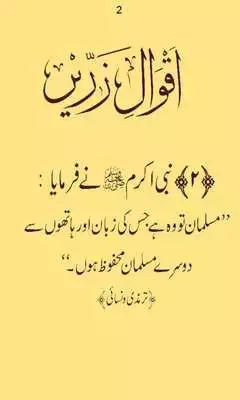 2
اَقوالِ زَرّیں
﴿۲﴾ نبی اکرم ﷺ نے فرمایا :
”مسلمان تو وہ ہے جس کی زبان اور ہاتھوں سے
دوسرے مسلمان محفوظ ہوں۔“
﴿ترمذی و نسائی﴾